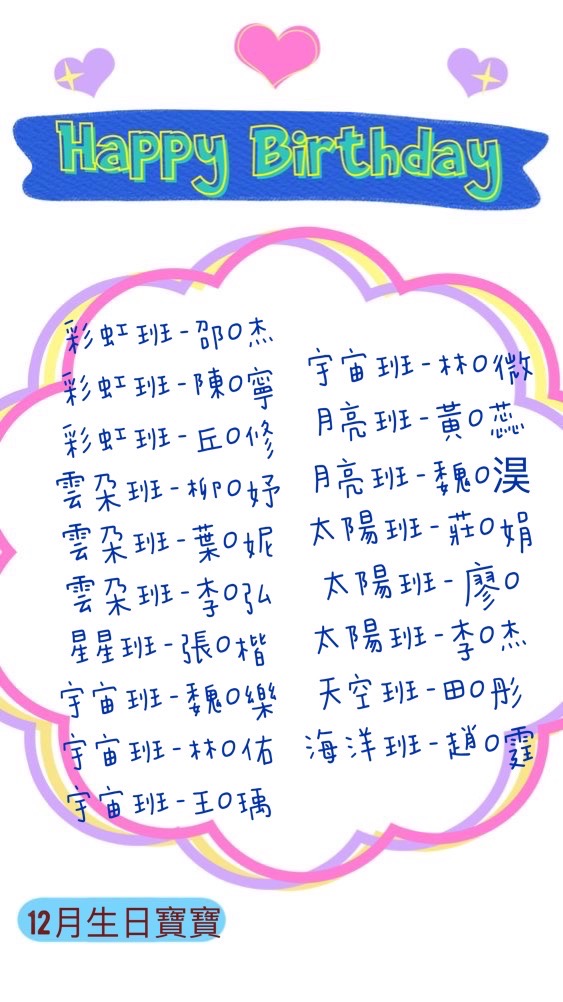 Happy Birthday
彩虹班-邵O杰
彩虹班-陳O寧
彩虹班-丘O修
雲朵班-柳O妤
雲朵班-葉O妮
雲朵班-李O弘
星星班-張O楷
宇宙班-魏O樂
宇宙班-林O佑
宇宙班-王O瑀
宇宙班-林O微
月亮班-黃O蕊
月亮班-魏O淏
太陽班-莊O娟
太陽班-廖O
太陽班-李O杰
天空班-田O彤
海洋班-趙O霆
12月生日寶寶